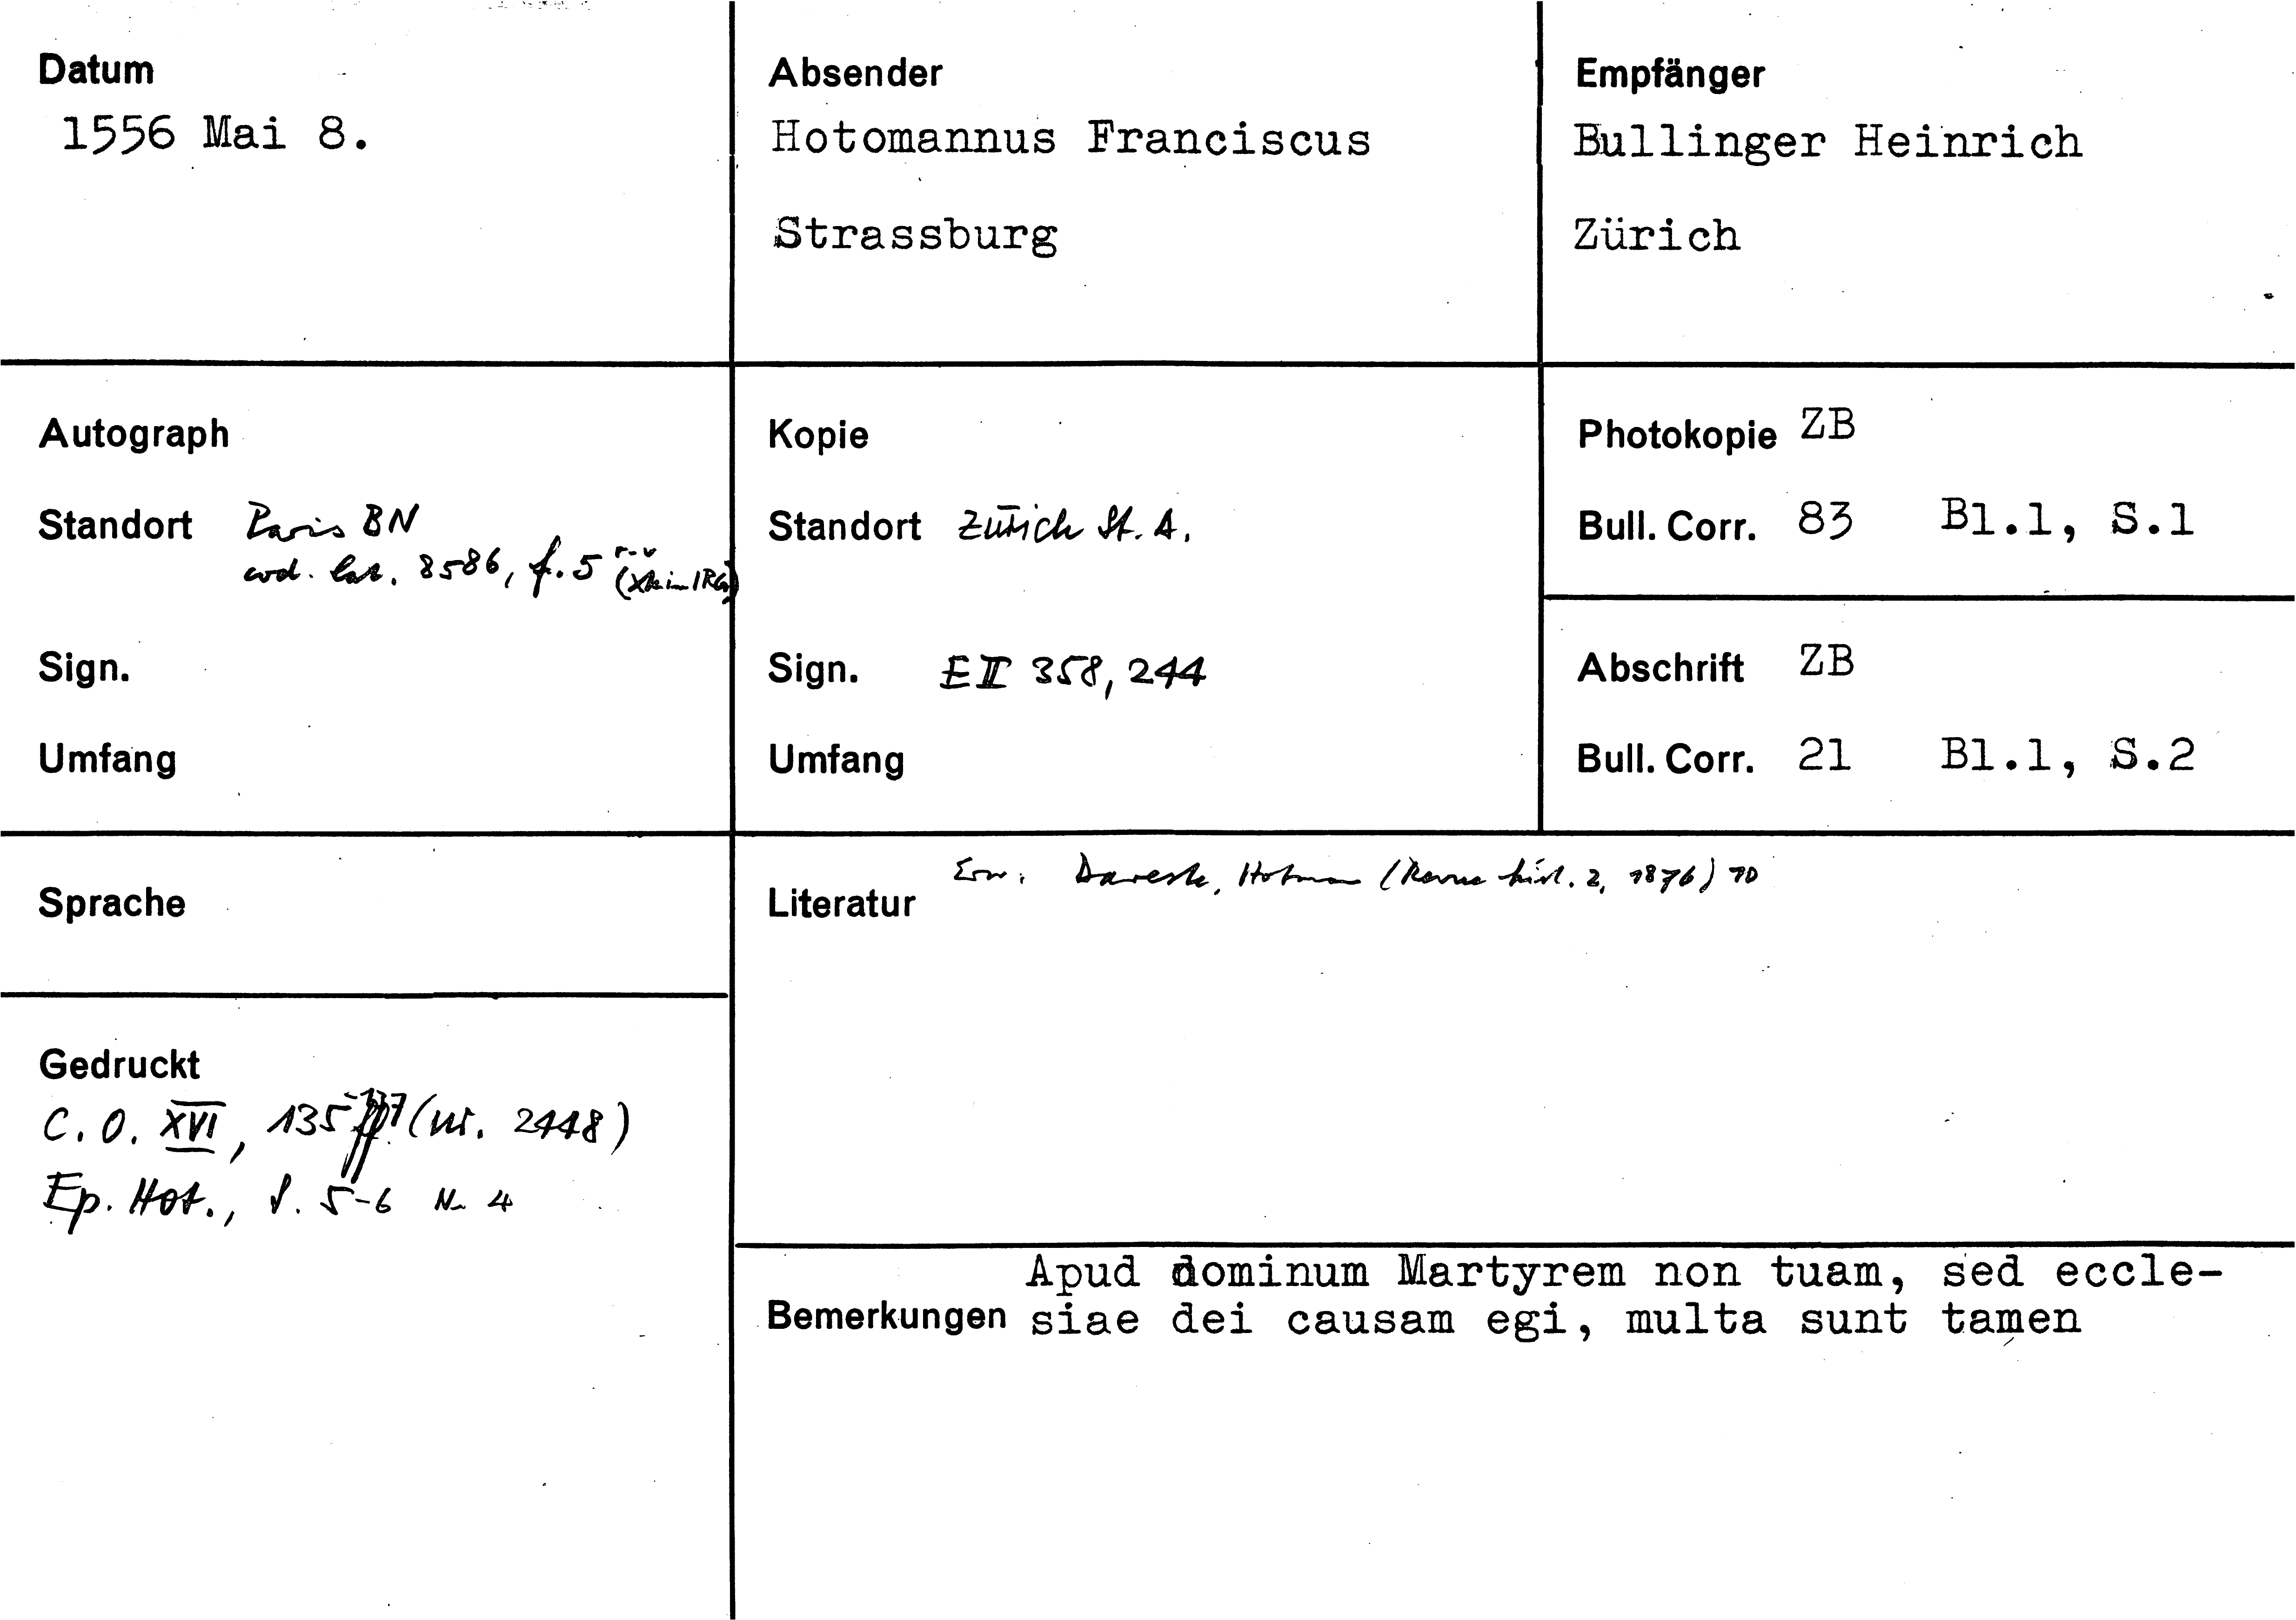 Datum
1556 Mai 8.
Absender
Hotomannus Franciscus
Strassburg
Empfänger
Bullinger Heinrich
Zürich
Autograph
Standort Paris BN
cod. lat. 8586, f. 5 r-v
Sign.
Umfang
Kopie
Standort Zürich St. A.
Sign. E II 358, 244
Umfang
Photokopie ZB
Bull. Corr. 83 Bl.1, S.1
Abschrift ZB
Bull. Corr. 21 Bl.1, S.2
Sprache
Literatur Erw. Dareste, Hotman (Revue hist. 2, 1876) 10
Gedruckt
C. O. XVI, 135-137 (nr. 2448)
Ep. Hot., S. 5-6 Nr 4
Bemerkungen
Apud dominum Martyrem non tuam, sed eccle-
siae dei causam egi, multa sunt tamen